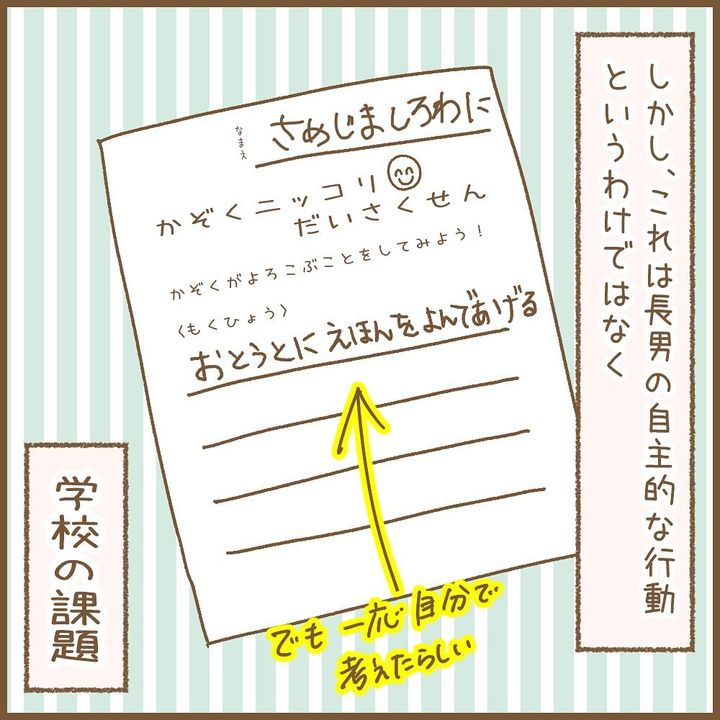 しかし、これは長男の自主的な行動
というわけではなく
なまえ
さめじましろわに
かぞくニッコリ
だいさくせん
かぞくがよろこぶことをしてみよう！
〈もくひょう〉
おとうとにえほんをよんであげる
でも一応自分で
考えたらしい
学校の課題